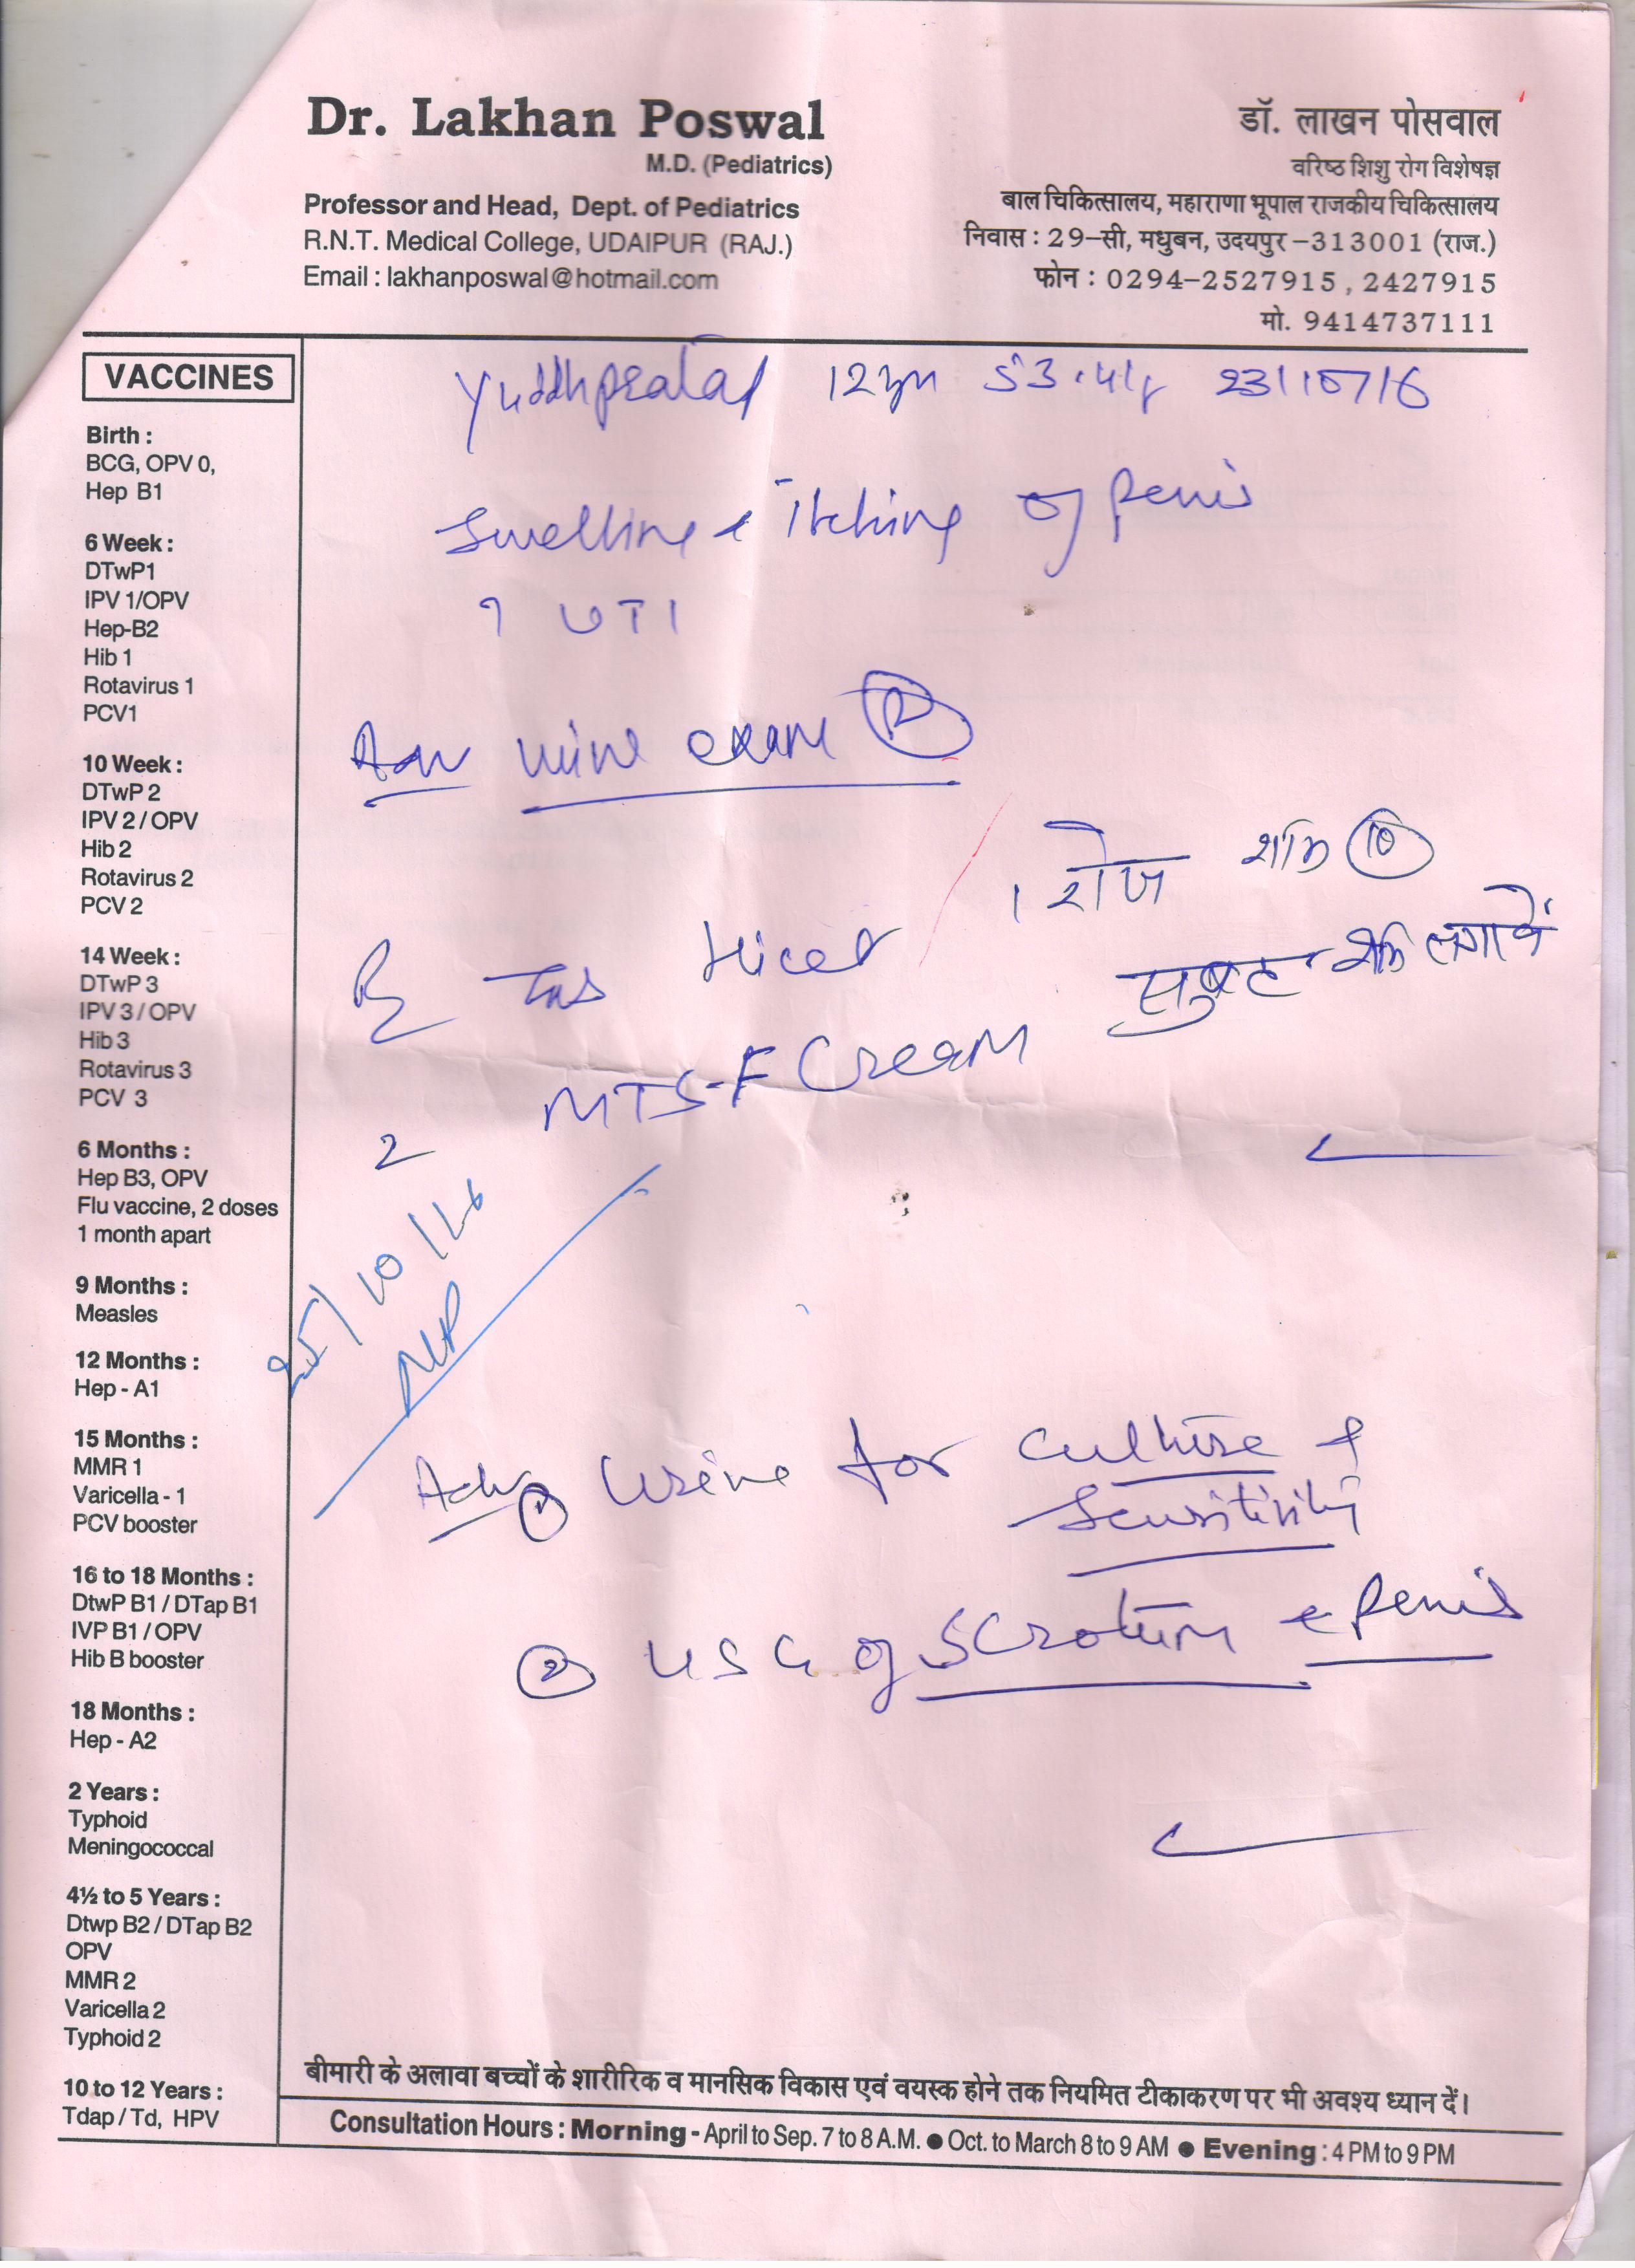 Dr. Lakhan Poswal
M.D. (Pediatrics)
Professor and Head, Dept. of Pediatrics
R.N.T. Medical College, UDAIPUR (RAJ.)
Email : lakhanposwal@hotmail.com
डॉ. लाखन पोसवाल
वरिष्ठ शिशु रोग विशेषज्ञ
बाल चिकित्सालय, महाराणा भूपाल राजकीय चिकित्सालय
निवास : 29-सी, मधुबन, उदयपुर -313001 (राज.)
फोन : 0294-2527915 , 2427915
मो. 9414737111
VACCINES
Birth :
BCG, OPV 0,
Hep B1
6 Week :
DTwP1
IPV 1/OPV
Hep-B2
Hib 1
Rotavirus 1
PCV1
10 Week :
DTwP 2
IPV 2 / OPV
Hib 2
Rotavirus 2
PCV 2
14 Week :
DTwP 3
IPV 3 / OPV
Hib 3
Rotavirus 3
PCV 3
6 Months :
Hep B3, OPV
Flu vaccine, 2 doses
1 month apart
9 Months :
Measles
12 Months :
Hep - A1
15 Months :
MMR 1
Varicella - 1
PCV booster
16 to 18 Months :
DtwP B1 / DTap B1
IVP B1 / OPV
Hib B booster
18 Months :
Hep - A2
2 Years :
Typhoid
Meningococcal
4½ to 5 Years :
Dtwp B2 / DTap B2
OPV
MMR 2
Varicella 2
Typhoid 2
10 to 12 Years :
Tdap / Td, HPV
Yuddhpratap 12 yr 53.4 23/10/16
Swelling & Itching of penis
? UTI
Adv urine exam (R)
1 रोज शाम (10)
Tab Hicet
सुबह शाम लगावें
MTS-F Cream
2
25/10/16
Adv (1) Urine for culture &
Sensitivity
(2) USG of Scrotum & penis
बीमारी के अलावा बच्चों के शारीरिक व मानसिक विकास एवं वयस्क होने तक नियमित टीकाकरण पर भी अवश्य ध्यान दें।
Consultation Hours : Morning - April to Sep. 7 to 8 A.M. ● Oct. to March 8 to 9 AM ● Evening : 4 PM to 9 PM